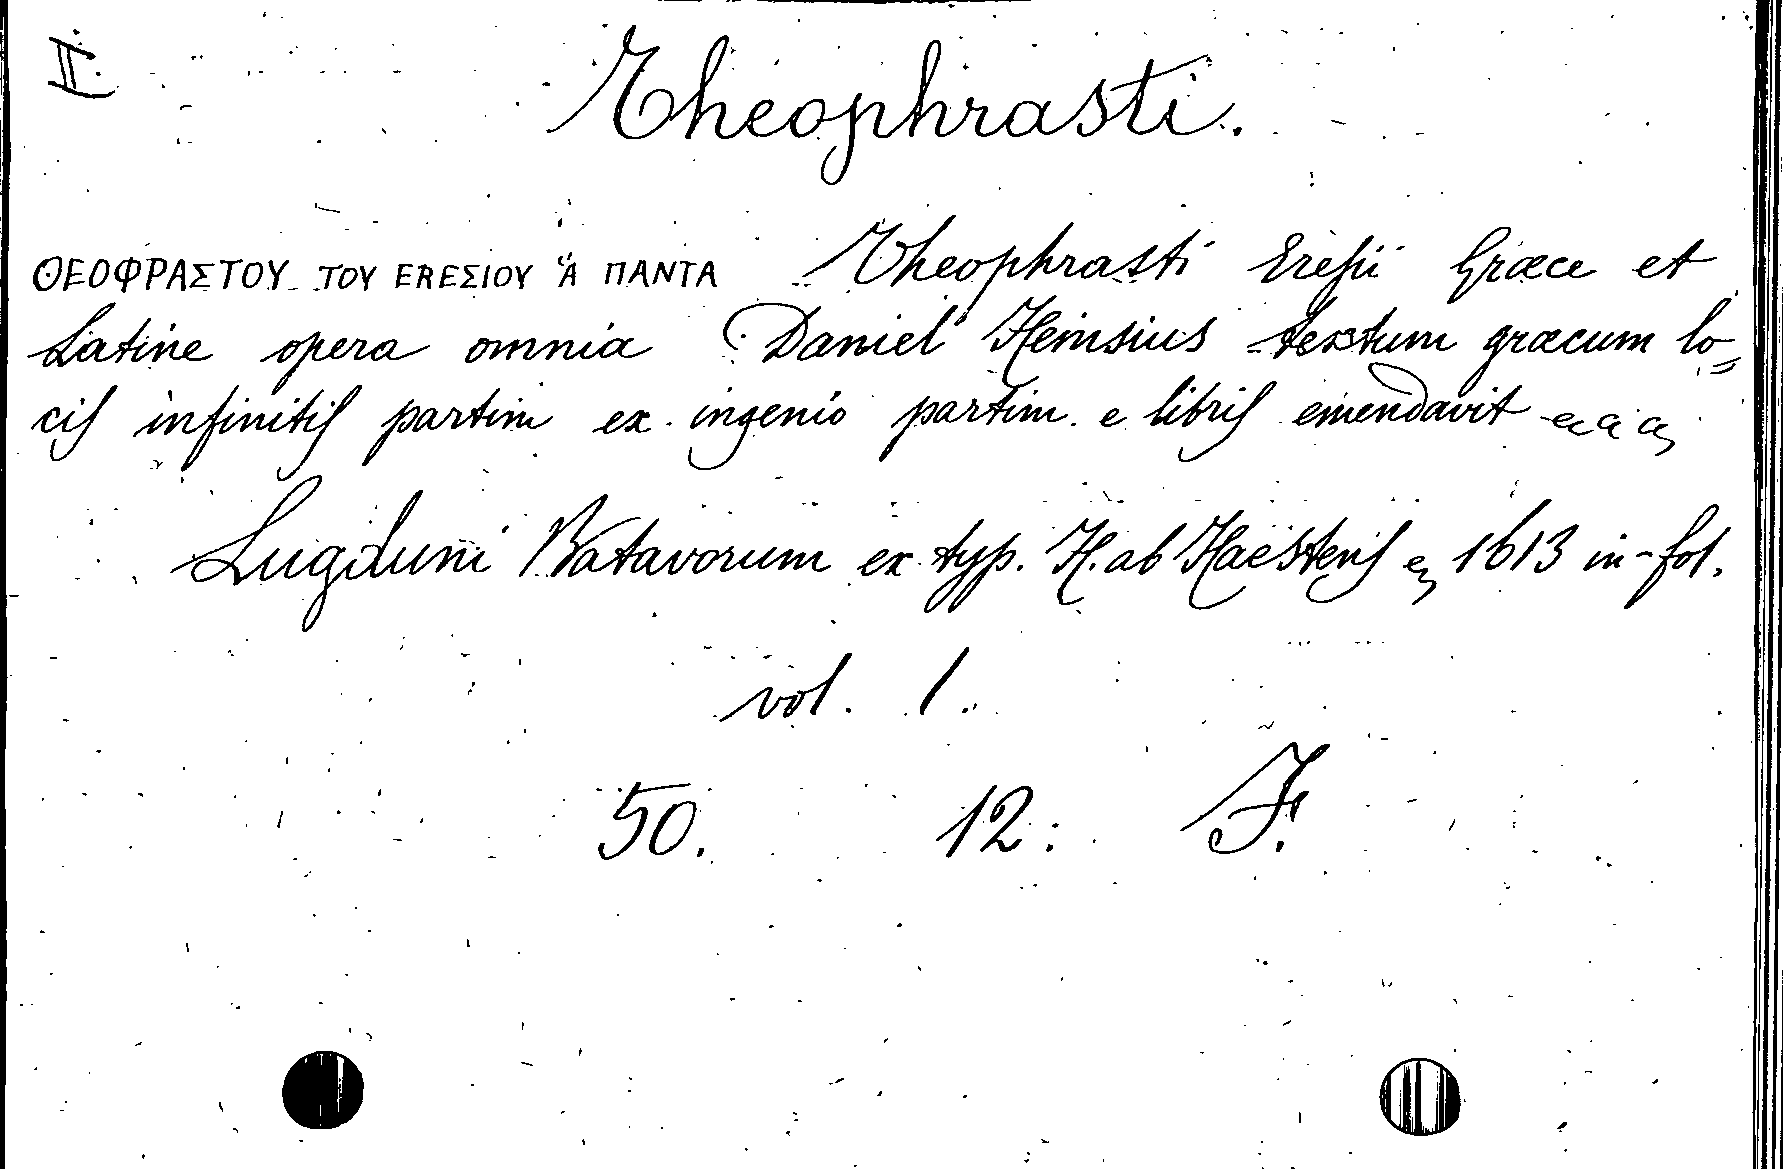 II.
Theophrasti.
ΘΕΟΦΡΑΣΤΟΥ ΤΟΥ ΕRΕΣΙΟΥ Ἅ ΠΑΝΤΑ Theophrasti Eresii Græce et
Latine opera omnia Daniel Heinsius textum græcum lo=
cis infinitis partim ex ingenio partim e libris emendavit
Lugduni Batavorum ex typ. H. ab Haestens 1613 in-fol.
vol. 1.
50. 12. F.